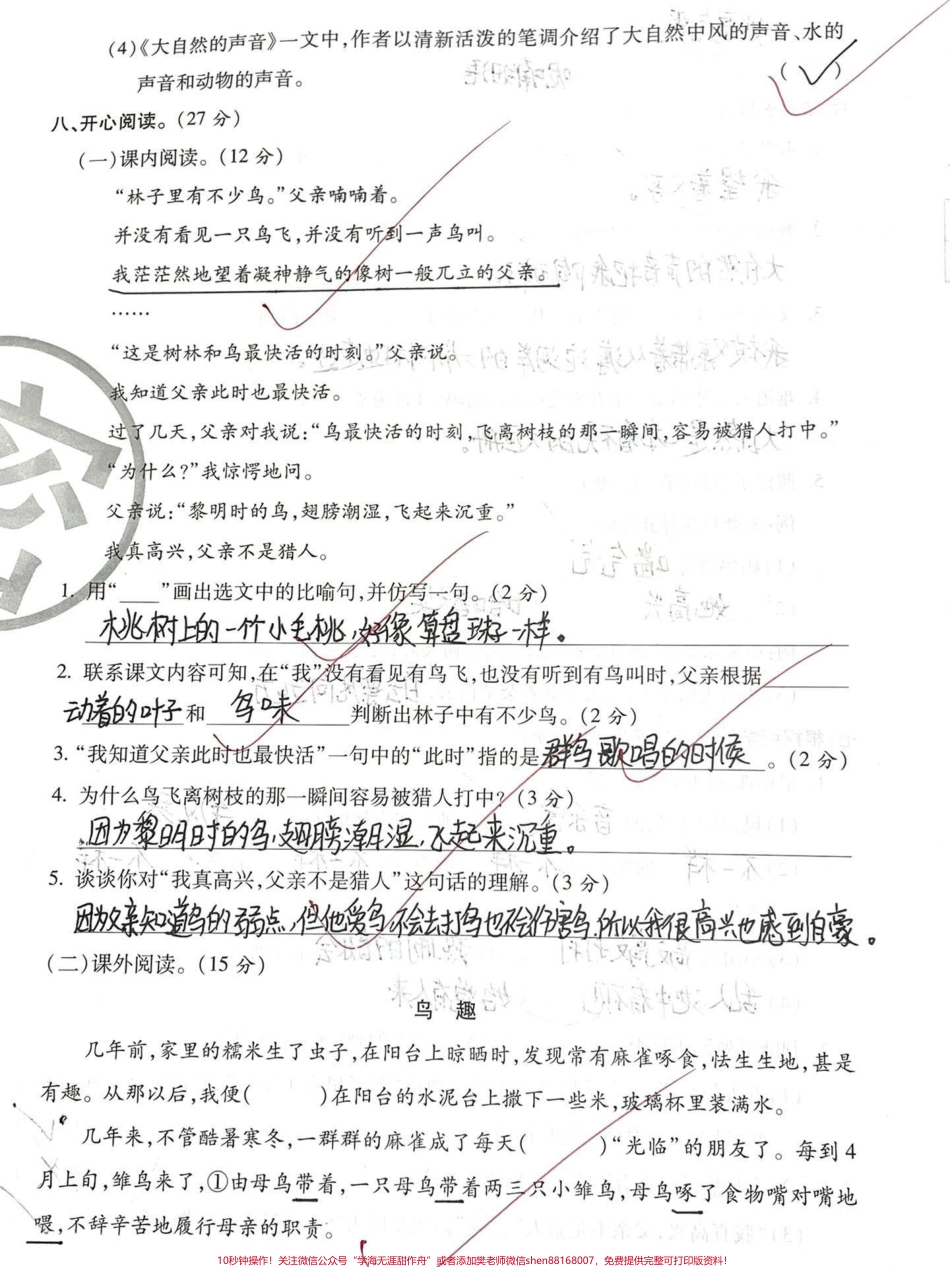 (4)《大自然的声音》一文中,作者以清新活泼的笔调介绍了大自然中风的声音、水的
声音和动物的声音。 (✓)
八、开心阅读。(27 分)
(一)课内阅读。(12 分)
“林子里有不少鸟。”父亲喃喃着。
并没有看见一只鸟飞,并没有听到一声鸟叫。
我茫茫然地望着凝神静气的像树一般兀立的父亲。
……
“这是树林和鸟最快活的时刻。”父亲说。
我知道父亲此时也最快活。
过了几天,父亲对我说:“鸟最快活的时刻,飞离树枝的那一瞬间,容易被猎人打中。”
“为什么?”我惊愕地问。
父亲说:“黎明时的鸟,翅膀潮湿,飞起来沉重。”
我真高兴,父亲不是猎人。
1. 用“____”画出选文中的比喻句,并仿写一句。(2 分)
桃树上的一个小毛桃,好像算盘珠子一样。
2. 联系课文内容可知,在“我”没有看见有鸟飞,也没有听到有鸟叫时,父亲根据
动着的叶子和 鸟味 判断出林子中有不少鸟。(2 分)
3. “我知道父亲此时也最快活”一句中的“此时”指的是群鸟歌唱的时候。(2 分)
4. 为什么鸟飞离树枝的那一瞬间容易被猎人打中?(3 分)
因为黎明时的鸟,翅膀潮湿,飞起来沉重。
5. 谈谈你对“我真高兴,父亲不是猎人”这句话的理解。(3 分)
因为父亲知道鸟的弱点,但他爱鸟,不会去打鸟也不会伤害鸟,所以我很高兴也感到自豪。
(二)课外阅读。(15 分)
鸟 趣
几年前,家里的糯米生了虫子,在阳台上晾晒时,发现常有麻雀啄食,怯生生地,甚是
有趣。从那以后,我便( )在阳台的水泥台上撒下一些米,玻璃杯里装满水。
几年来,不管酷暑寒冬,一群群的麻雀成了每天( )“光临”的朋友了。每到 4
月上旬,雏鸟来了,①由母鸟带着,一只母鸟带着两三只小雏鸟,母鸟啄了食物嘴对嘴地
喂,不辞辛苦地履行母亲的职责。
10秒钟操作！关注微信公众号“学海无涯甜作舟”或者添加樊老师微信shen88168007，免费提供完整可打印版资料！